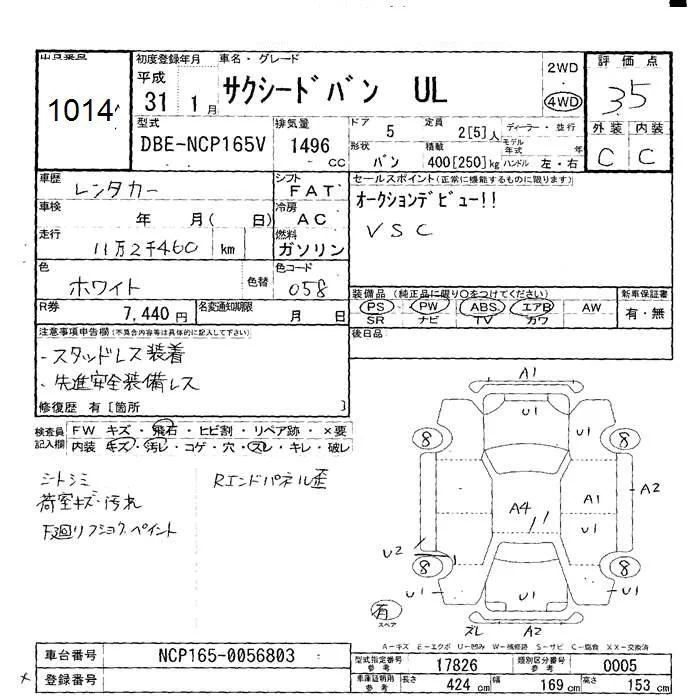 出品番号 初度登録年月 車名・グレード 評価点
1014 平成 31 1月 サクシードバン UL 2WD 4WD 35
型式 排気量 ドア 5 定員 2[5]人 ディーラー・並行 外装 内装
DBE-NCP165V 1496 CC 形状 バン 積載 400[250]kg モデル年式 年 ハンドル 左・右 C C
車歴 レンタカー シフト FAT セールスポイント(正常に機能するものに限ります)
車検 年 月( 日) 冷房 AC オークションデビュー!!
走行 11万2千460 km 燃料 ガソリン VSC
色 ホワイト 色替 色コード 058
装備品(純正品に限り○をつけてください) 新車保証書
R券 7,440円 名変通知期限 月 日 PS PW ABS エアB AW 有・無
SR ナビ TV カワ
注意事項申告欄(不具合内容等は具体的に記入して下さい) 後日品
・スタッドレス装着
・先進安全装備レス
修復歴 有[箇所 ]
検査員記入欄 FW キズ・飛石・ヒビ割・リペア跡・×要
内装 キズ・汚レ・コゲ・穴・スレ・キレ・破レ
シートシミ Rエンドパネル歪
荷室キズ・汚れ
下廻リフショクペイント
A1
U1
8 U1 8
A1 A2
A4 U1
U2
8 8
U1 U1 U1
有
スペア ズレ A2
A-キズ E-エクボ U-凹み W-補修跡 S-サビ C-腐食 XX-交換済
車台番号 NCP165-0056803 型式指定番号 参考 17826 類別区分番号 参考 0005
× 登録番号 車庫証明用 参考 長さ 424 cm 幅 169 cm 高さ 153 cm